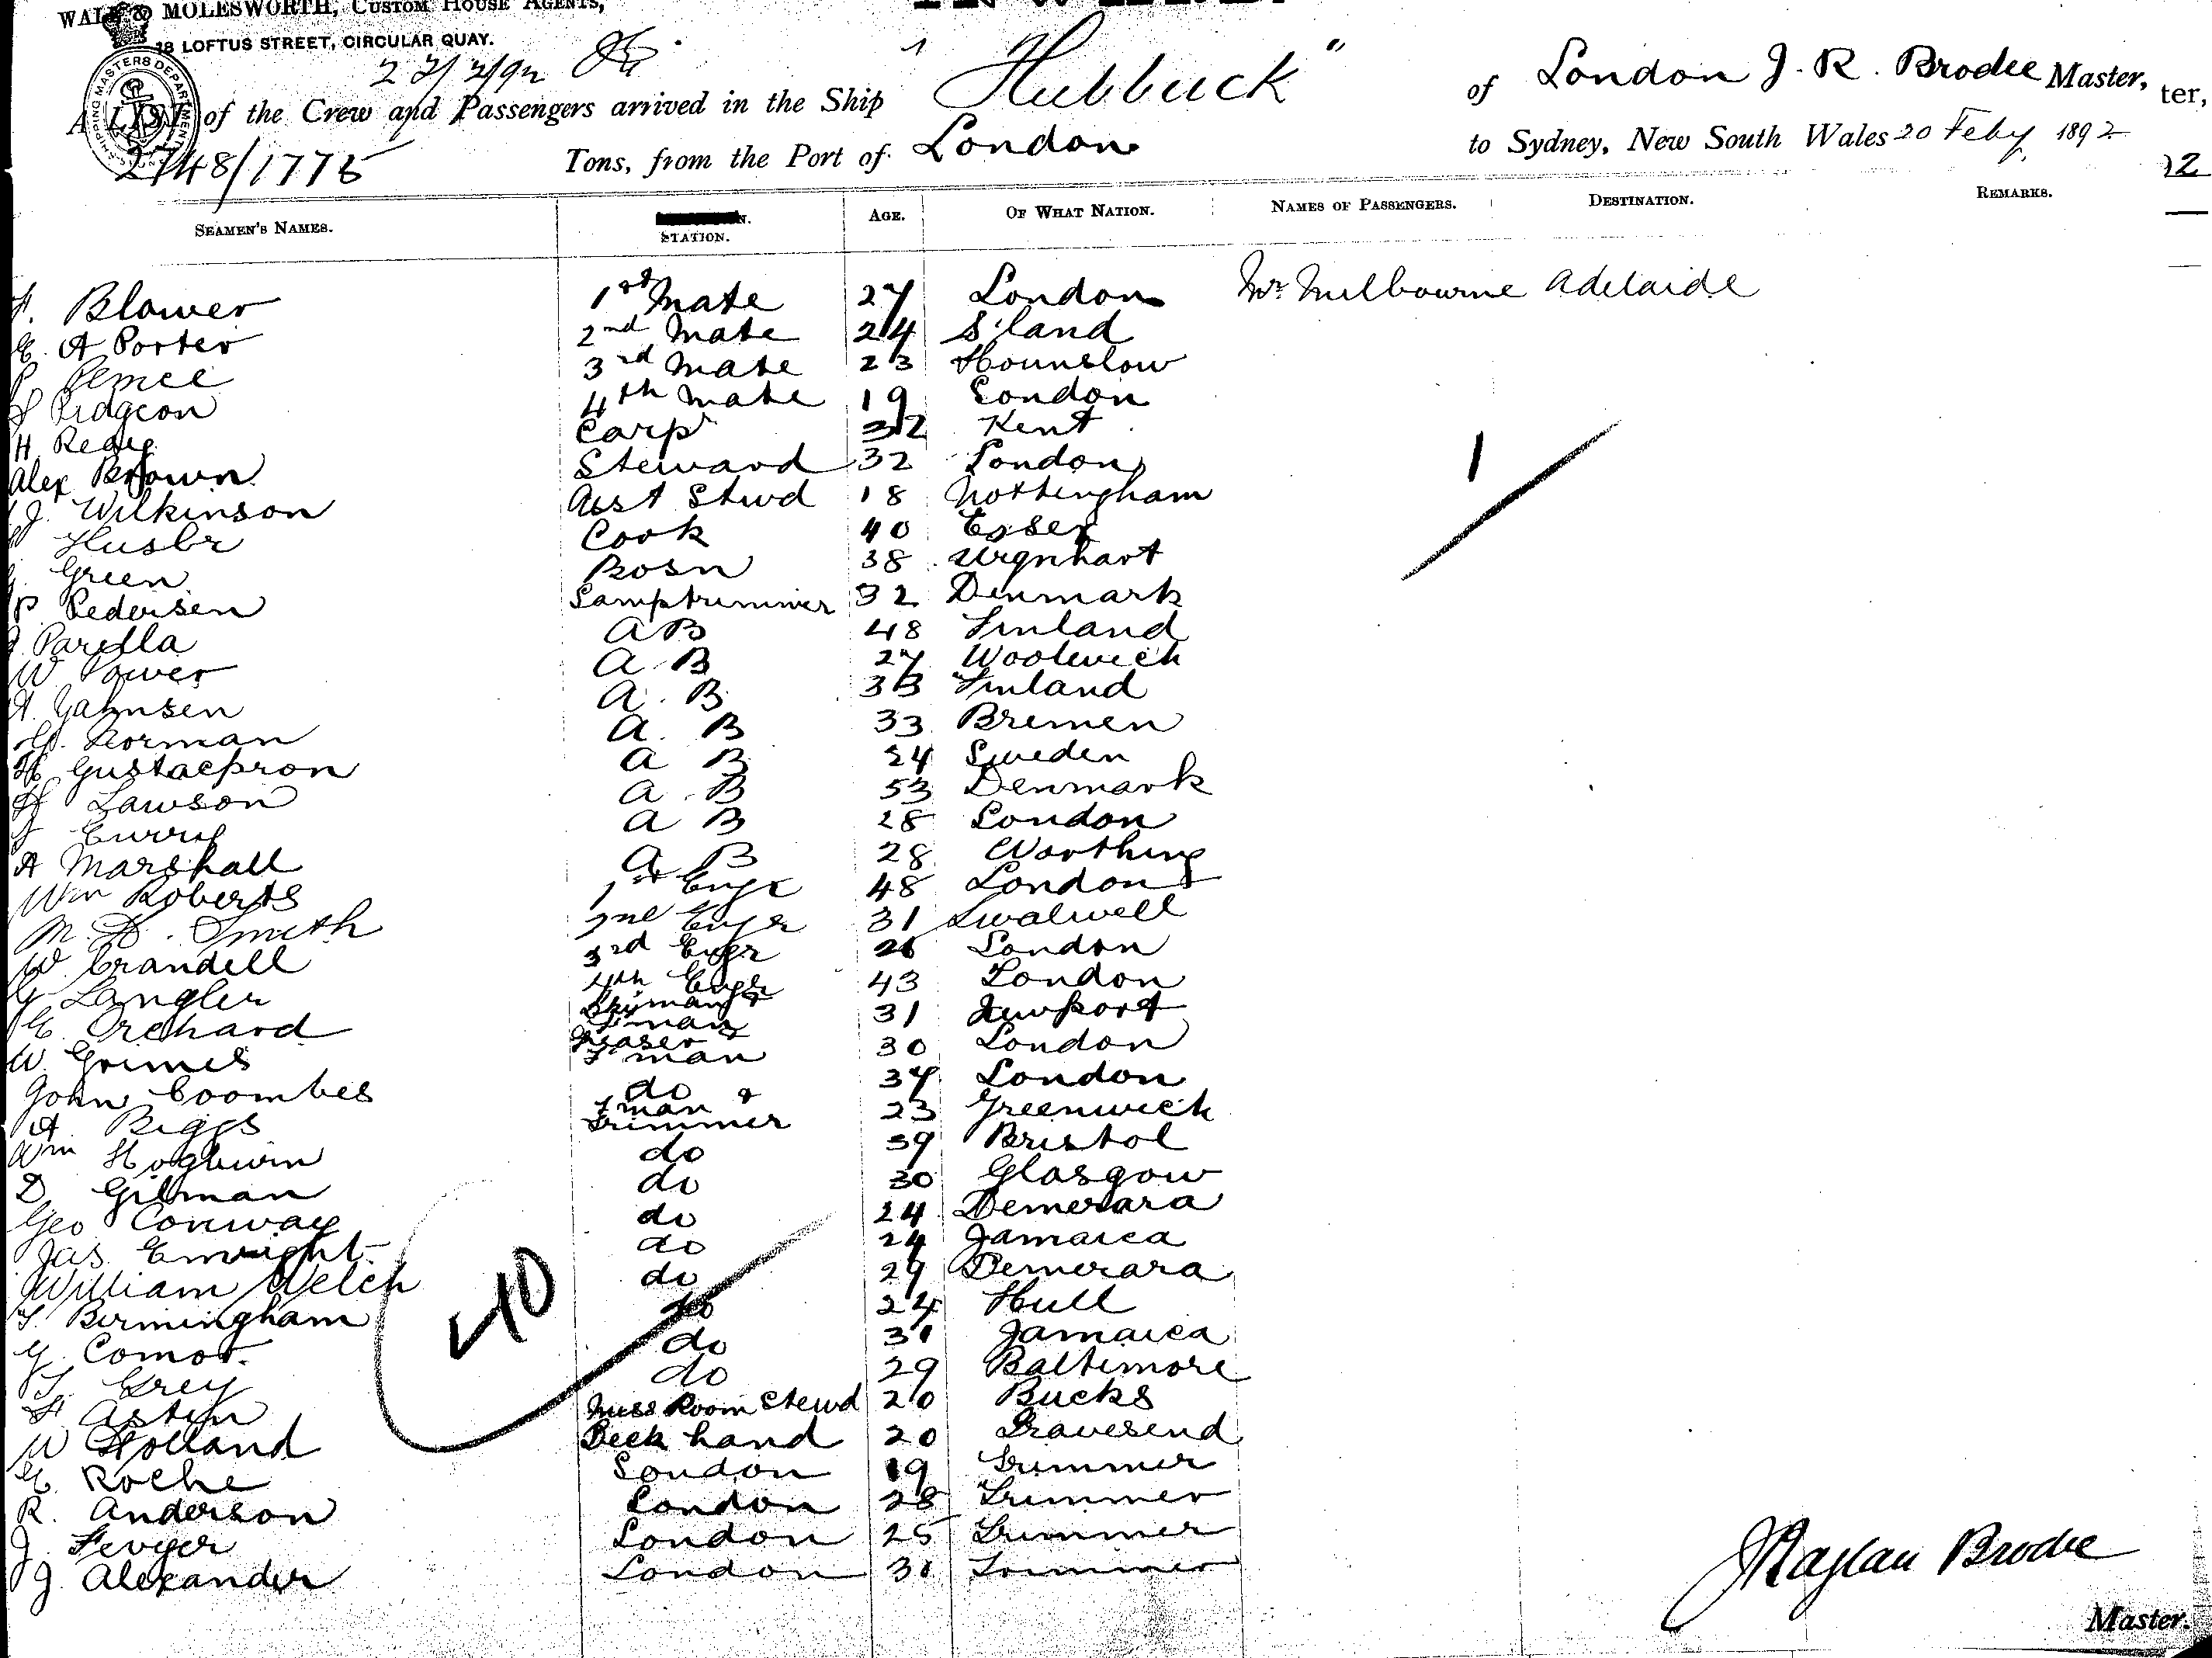 WALK & MOLESWORTH, CUSTOM HOUSE AGENTS,
18 LOFTUS STREET, CIRCULAR QUAY.
22/2/92
SHIPPING MASTERS DEPARTMENT
A LIST of the Crew and Passengers arrived in the Ship "Hubbuck" of London J. R. Brodie Master, ter,
2748/1775 Tons, from the Port of London to Sydney, New South Wales 20 Feby 1892
92
SEAMEN'S NAMES. STATION. AGE. OF WHAT NATION. NAMES OF PASSENGERS. DESTINATION. REMARKS.
Blower 1st Mate 27 London Mr Melbourne Adelaide
E. A Porter 2nd Mate 24 S'land
Pemee 3rd Mate 23 Hounslow
Pidgeon 4th Mate 19 London
H Ready Carpr 32 Kent
Alex Brown Steward 32 London
J. Wilkinson Asst Stwd 18 Nottingham
Husbr Cook 40 Essex
Green Bosn 38 Urqnhart
P. Pedersen Lamptrimmer 32 Denmark
Parella AB 48 Finland
W Power A B 27 Woolwich
A. Jahnsen A. B 33 Finland
Norman A. B 33 Bremen
Gustaepron A B 24 Sweden
Lawson A. B 53 Denmark
Curry A B 28 London
A Marshall A B 28 Worthing
Wm Roberts 1st Engr 48 London
M. D. Smith 2nd Engr 31 Swalwell
W. Crandell 3rd Engr 26 London
G Langler 4th Engr 43 London
E. Orchard Dkyman & F'man 31 Newport
W. Grimes Greaser & F'man 30 London
John Coombes do 37 London
A. Biggs F'man & Trimmer 23 Greenwich
Wm Hogbwin do 39 Bristol
D. Gilman do 30 Glasgow
Geo Conway do 24 Demerara
Jas Enwright do 24 Jamaica
William Welch do 29 Demerara
T. Birmingham do 24 Hull
G. Comor. do 31 Jamaica
T. Grey do 29 Baltimore
Astin Mess Room Stewd 20 Bucks
W Holland Deck hand 20 Gravesend
E. Roche London 19 Trimmer
R. Anderson London 28 Trimmer
J. Fevyer London 25 Trimmer
J. Alexander London 31 Trimmer
1
40
J Raglan Brodie
Master.